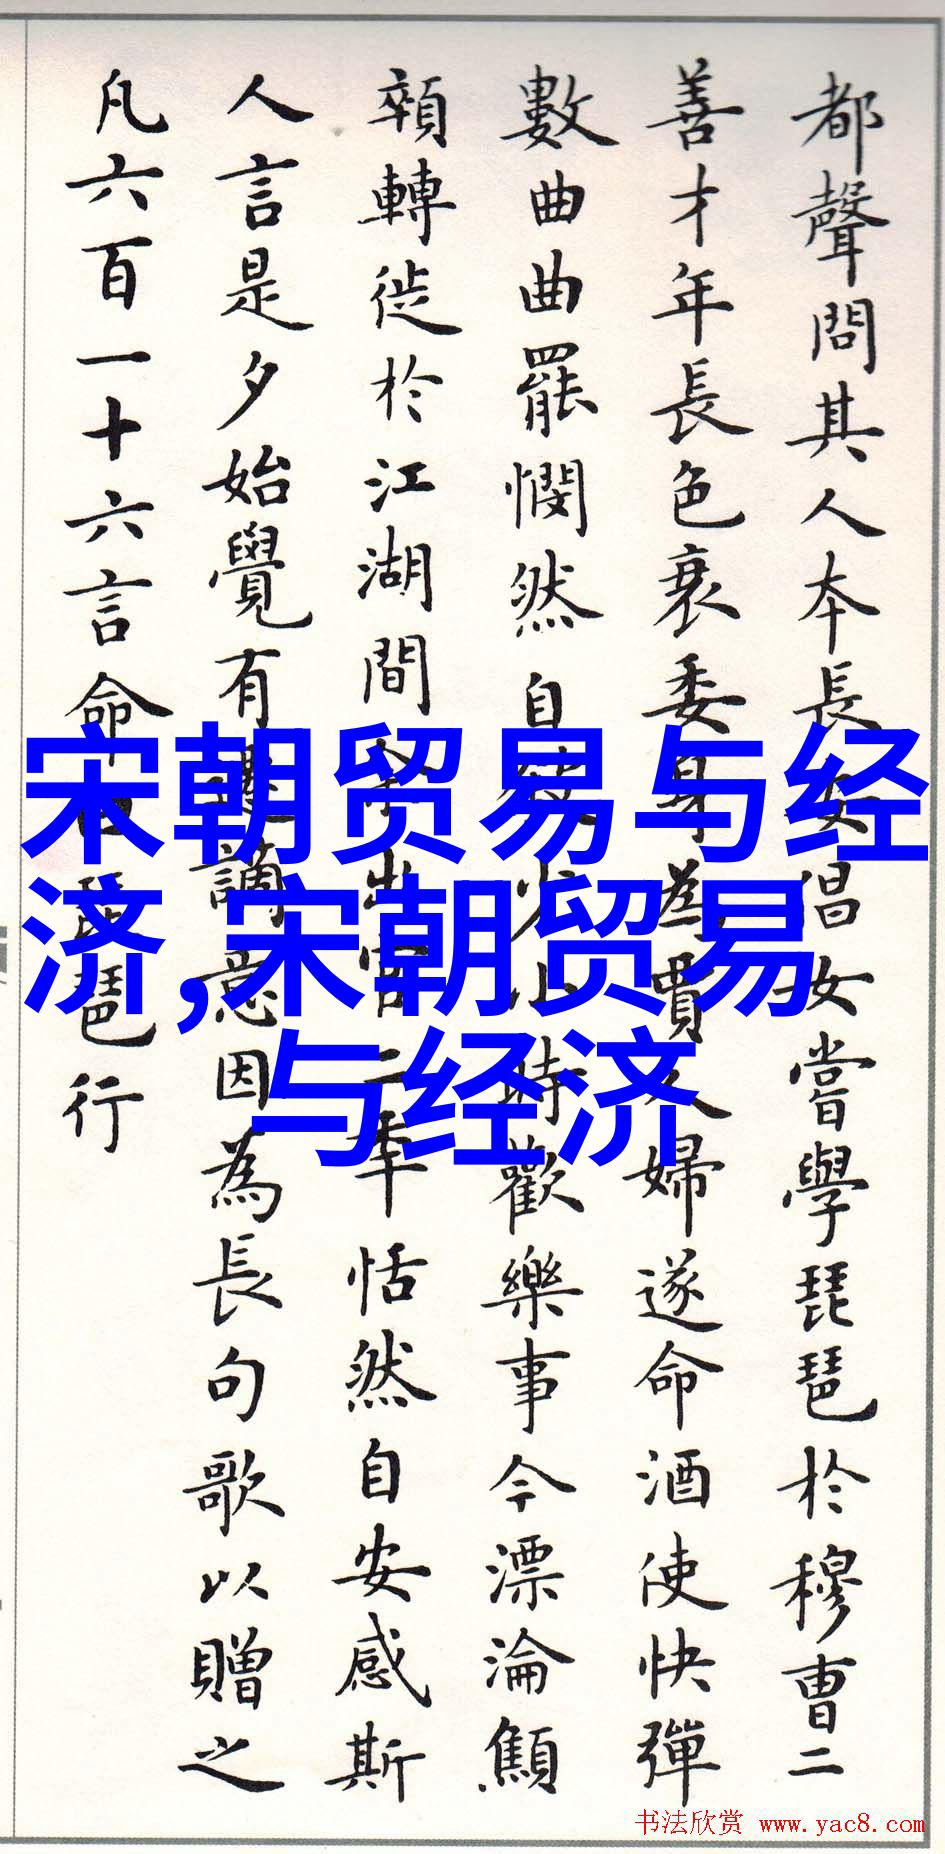 都聲問其人本長女倡女嘗學琵琶於穆曹二
善才年長色衰委身為賈人婦遂命酒使快彈
數曲曲罷憫然自少小時歡樂事今漂淪顦
顇轉徙於江湖間出官二年恬然自安感斯
人言是夕始覺有謫意因為長句歌以贈之
凡六百一十六言命琵琶行
宋朝贸易与经
济,宋朝贸易
与经济
书法欣赏 www.yac8.com